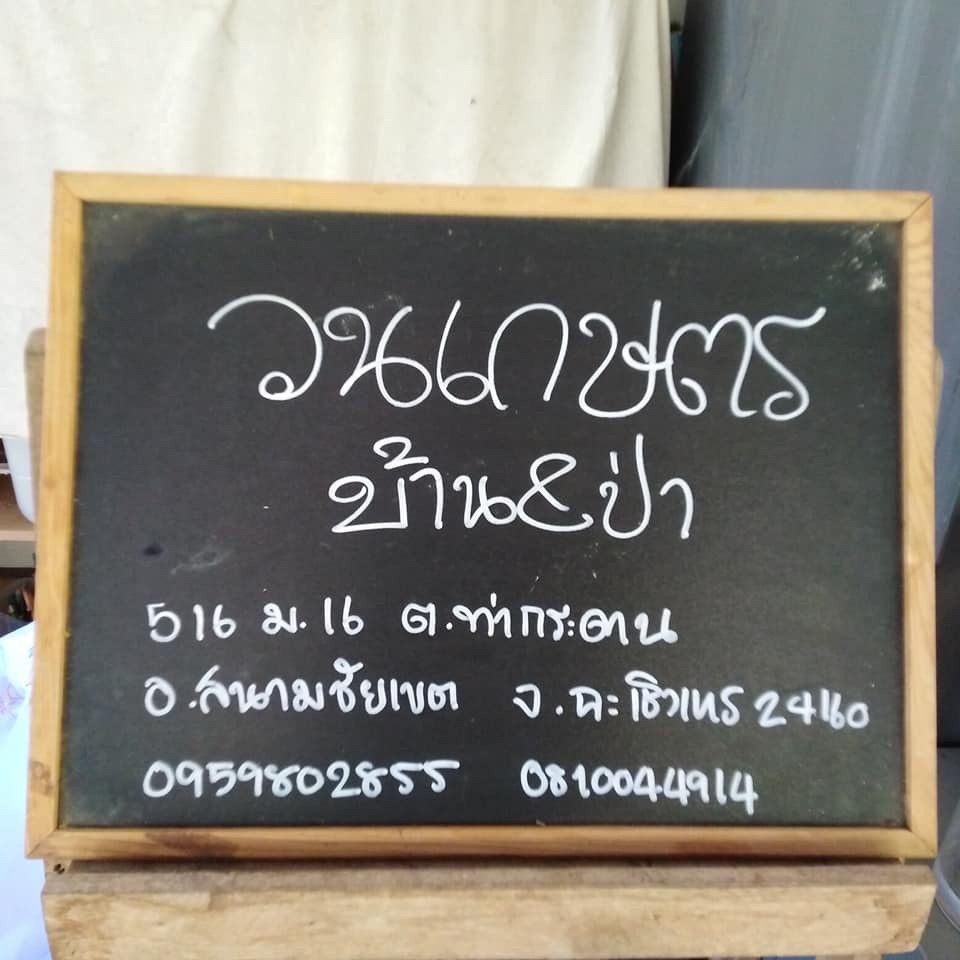 วนเกษตร
บ้าน&ป่า
516 ม.16 ต.ท่ากระดาน
อ.สนามชัยเขต จ.ฉะเชิงเทรา 24160
0959802855 0810044914